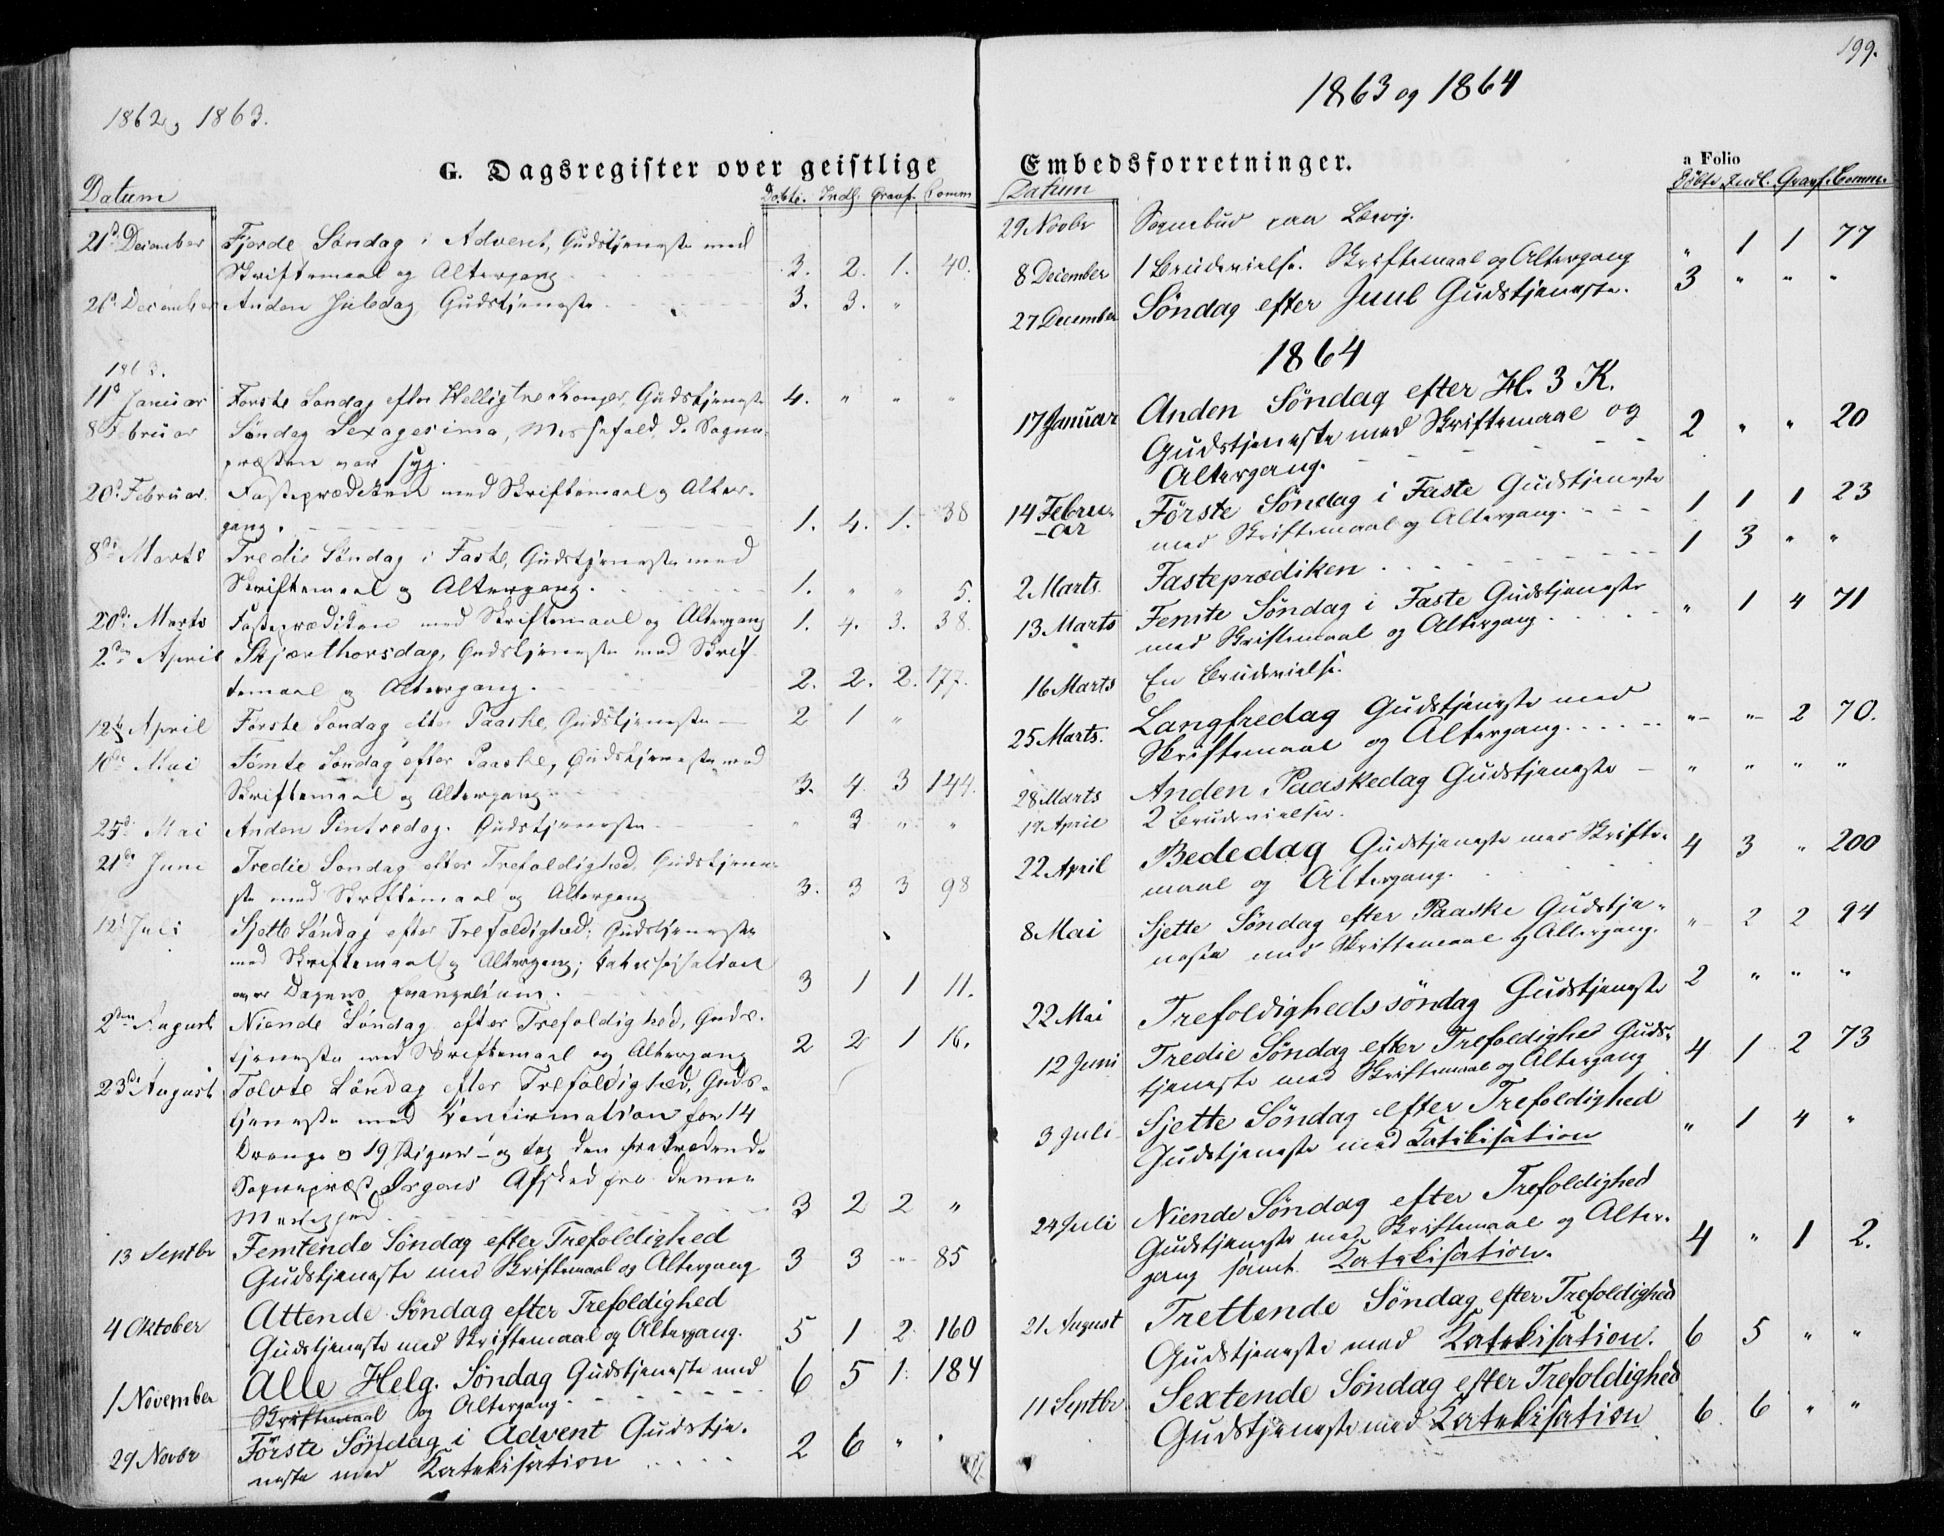 1862 og 1863.
G. Dagsregister over geistlige
Datum Døbte. Indl. Gravf. Comm.
21d December Fjerde Søndag i Advent, Gudstjeneste med
Skriftemaal og Altergang 3. 2. 1. 40.
26d December Anden Juledag Gudstjeneste 3. 3. "
1863.
11d Januar Første Søndag efter Hellig tre Konger, Gudstjeneste 4. " " "
8 Februar Søndag Sexagesima, Messefald, da Sogne-
præsten var syg.
20d Februar. Fasteprædiken med Skriftemaal og Alter-
gang. 1. 4. 1. 38
8de Marts Tredie Søndag i Faste, Gudstjeneste med
Skriftemaal og Altergang. 1. " " 5.
20de Marts Fasteprædiken med Skriftemaal og Altergang 1. 4. 3. 38.
2den April Skjærthorsdag, Gudstjeneste med Skrif-
temaal og Altergang. 2. 2. 2. 177.
12te April Første Søndag efter Paaske, Gudstjeneste 2 1 "
10de Mai Femte Søndag efter Paaske, Gudstjeneste med
Skriftemaal og Altergang 3. 4. 3 144.
25de Mai Anden Pintsedag. Gudstjeneste " 3 " "
21de Juni Tredie Søndag efter Trefoldighed, Gudstjene-
ste med Skriftemaal og Altergang 3. 3 3 98
12te Juli Sjette Søndag efter Trefoldighed; Gudstjeneste
med Skriftemaal og Altergang; Catechisation
over Dagens Evangelium. 3 1 1 11.
2den August Niende Søndag efter Trefoldighed, Guds-
tjeneste med Skriftemaal og Altergang 2 2 1 16.
23de August Tolvte Søndag efter Trefoldighed, Guds-
tjeneste med Confirmation for 14
Drenge og 19 Piger – og tog den fratrædende
Sognepræst Afsked fra denne
Menighed. 3 2 2 "
13 Septbr Femtende Søndag efter Trefoldighed
Gudstjeneste med Skriftemaal og Altergang 3 3 " 85
4 Oktober Attende Søndag efter Trefoldighed
Gudstjeneste med Skriftemaal og Altergang. 5 1 2 160
1 November Alle Helg. Søndag Gudstjeneste med
Skriftemaal og Altergang. 6 5 1. 184
29 Novbr Første Søndag i Advent Gudstje-
neste med Katekisation 2 6 " "
199.
1863 og 1864
Embedsforretninger.
a Folio
Datum Døbte Indl. Gravf. Comm.
29 Novbr Sognebud paa
8 December 1 Brudevielse. Skriftemaal og Altergang " 1 1 77
27 December Søndag efter Juul Gudstjeneste. 3 " " "
1864
17 Januar Anden Søndag efter H. 3 K.
Gudstjeneste med Skriftemaal og
Altergang. 2 " " 20
14 Febru- Første Søndag i Faste Gudstjeneste
-ar med Skriftemaal og Altergang. 1 1 1 23
2 Marts. Fasteprædiken 1 3 " "
13 Marts Femte Søndag i Faste Gudstjeneste
med Skriftemaal og Altergang. " 1 4 71
16 Marts En Brudevielse.
25 Marts. Langfredag Gudstjeneste med
Skriftemaal og Altergang. " " 2 70.
28 Marts Anden Paaskedag Gudstjeneste " " " "
19 April 2 Brudevielser.
22 April Bededag Gudstjeneste med Skrifte-
maal og Altergang. 4 3 " 200
8 Mai Sjette Søndag efter Paaske Gudstje-
neste med Skriftemaal og Altergang. " 2 2 94
22 Mai Trefoldighedssøndag Gudstjeneste 2 " " "
12 Juni Tredie Søndag efter Trefoldighed Guds-
tjeneste med Skriftemaal og Altergang 4 1 2 73
3 Juli Sjette Søndag efter Trefoldighed
Gudstjeneste med Katekisation " 1 4 "
24 Juli Niende Søndag efter Trefoldighed
Gudstjeneste med Skriftemaal og Alter-
gang samt Katekisation. 4 " 1 2.
21 August Trettende Søndag efter Trefoldighed
Gudstjeneste med Katekisation. 6 5 " "
11 Septbr Sextende Søndag efter Trefoldighed
Gudstjeneste med Katekisation 6 6 " "